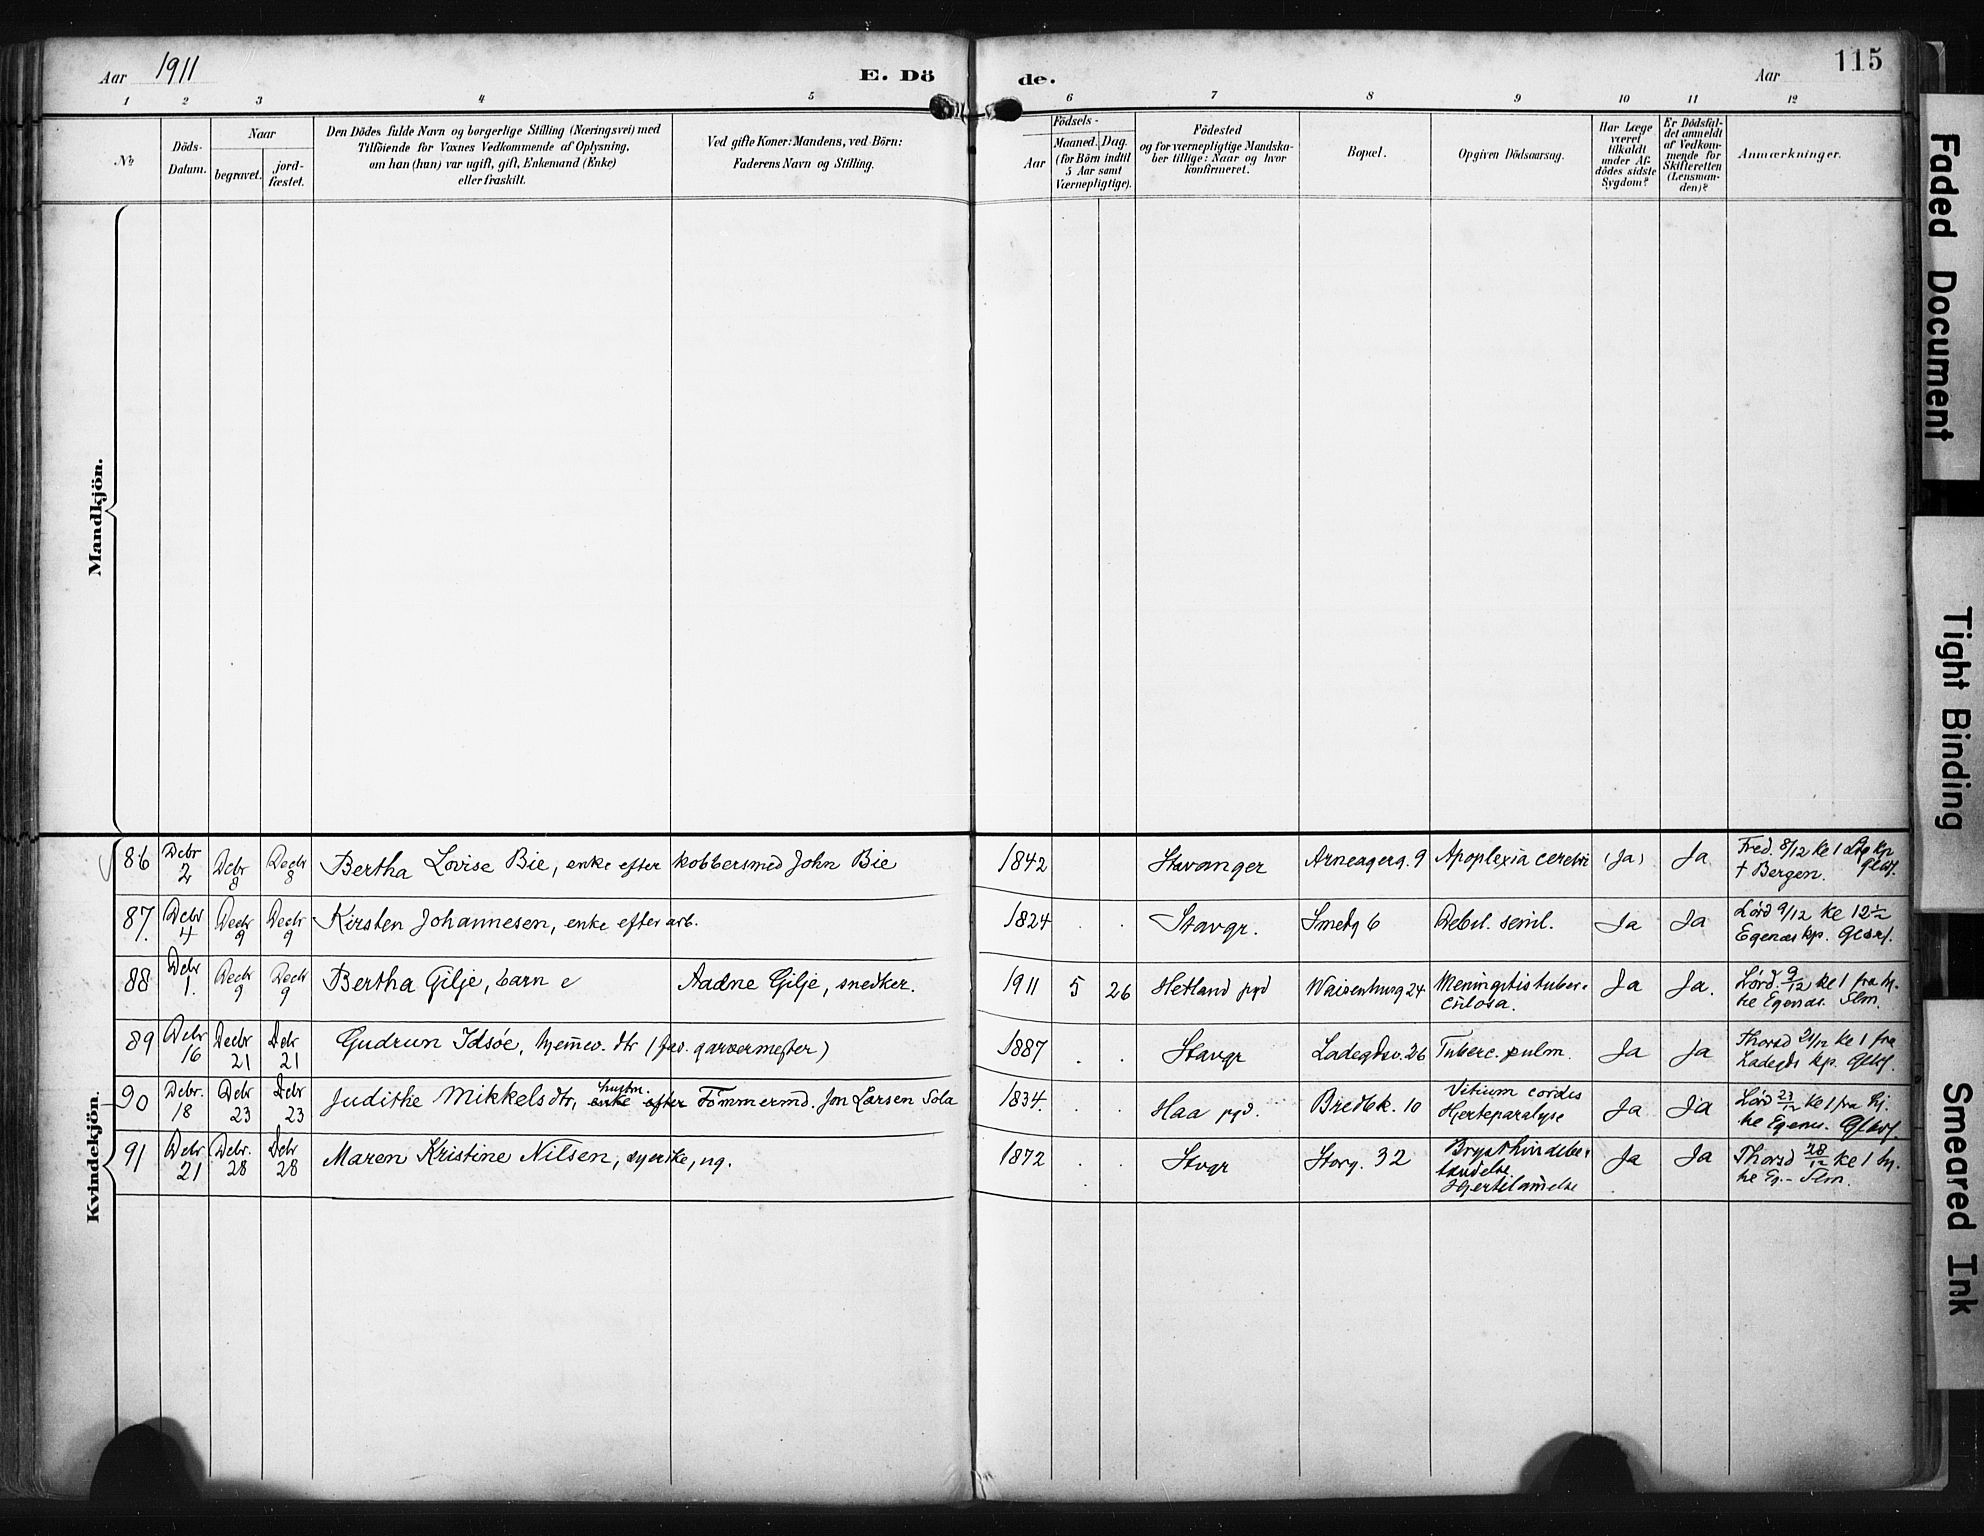 Aar 1911
E. Dö de.
Aar
115
1 2 3 4 5 6 7 8 9 10 11 12
No
Döds-
Datum.
Naar
begravet.
jord-
fæstet.
Den Dödes fulde Navn og borgerlige Stilling (Næringsvei) med
Tilföiende for Voxnes Vedkommende af Oplysning,
om han (hun) var ugift, gift, Enkemand (Enke)
eller fraskilt.
Ved gifte Koner: Mandens, ved Börn:
Faderens Navn og Stilling.
Födsels-
Aar
Maaned. Dag
(for Börn indtil
5 Aar samt
Værnepligtige).
Födested
og for værnepligtige Mandska-
ber tillige: Naar og hvor
konfirmeret.
Bopæl.
Opgiven Dödsaarsag.
Har Læge
været
tilkaldt
under Af-
dödes sidste
Sygdom?
Er Dödsfal-
det anmeldt
af Vedkom-
mende for
Skifteretten
(Lensman-
den)?
Anmærkninger.
Mandkjön.
Kvindekjön.
86 Debr 2 Debr 8 Decbr 8 Bertha Lovise Bie, enke efter kobbersmed John Bie 1842 Stavanger Arneagerg. 9 Apoplexia cerebri (Ja) Ja Fred. 8/12 kl 1
† Bergen.
87. Debr 4 Decbr 9 Decbr 9 Kirsten Johannesen, enke efter arb. 1824 . . Stavgr. Smedg 6 Debil. senil. Ja Ja Lörd 9/12 kl 12½
Egenæs kp.
88 Debr 1. Decbr 9 Decbr 9 Bertha Gilje, barn e Aadne Gilje, snedker. 1911 5 26 Hetland pgd Waisenhusg 24 Meningitis tuber-
culosa. Ja Ja. Lörd. 9/12 kl 1 fra hj.
89 Debr 16 Decbr 21 Debr 21 Gudrun Idsöe, hjemmev. dtr (fav. garvermester) 1887 . . Stavgr Ladegdsv. 26 Tuberc. pulm. Ja Ja Thorsd 21/12 kl 1 fra
Ladegds kp.
90 Debr. 18 Debr 23 Debr 23 Judithe Mikkelsdtr, hustru. enke efter Tömmermd. Jon Larsen Sola 1834. . . Haa pgd. Bredbk. 10 Vitium cordis
Hjerteparalyse Ja Ja Lörd 23/12 kl 1 fra hj.
91 Debr 21 Debr. 28 Debr 28 Maren Kristine Nilsen, syerske, ug. 1872 . . Stvgr Storg. 32 Brysthindebe-
tændelse
Hjertelammelse Ja Ja Thorsd 28/12 kl 1 hj.
Faded Document
Tight Binding
Smeared Ink